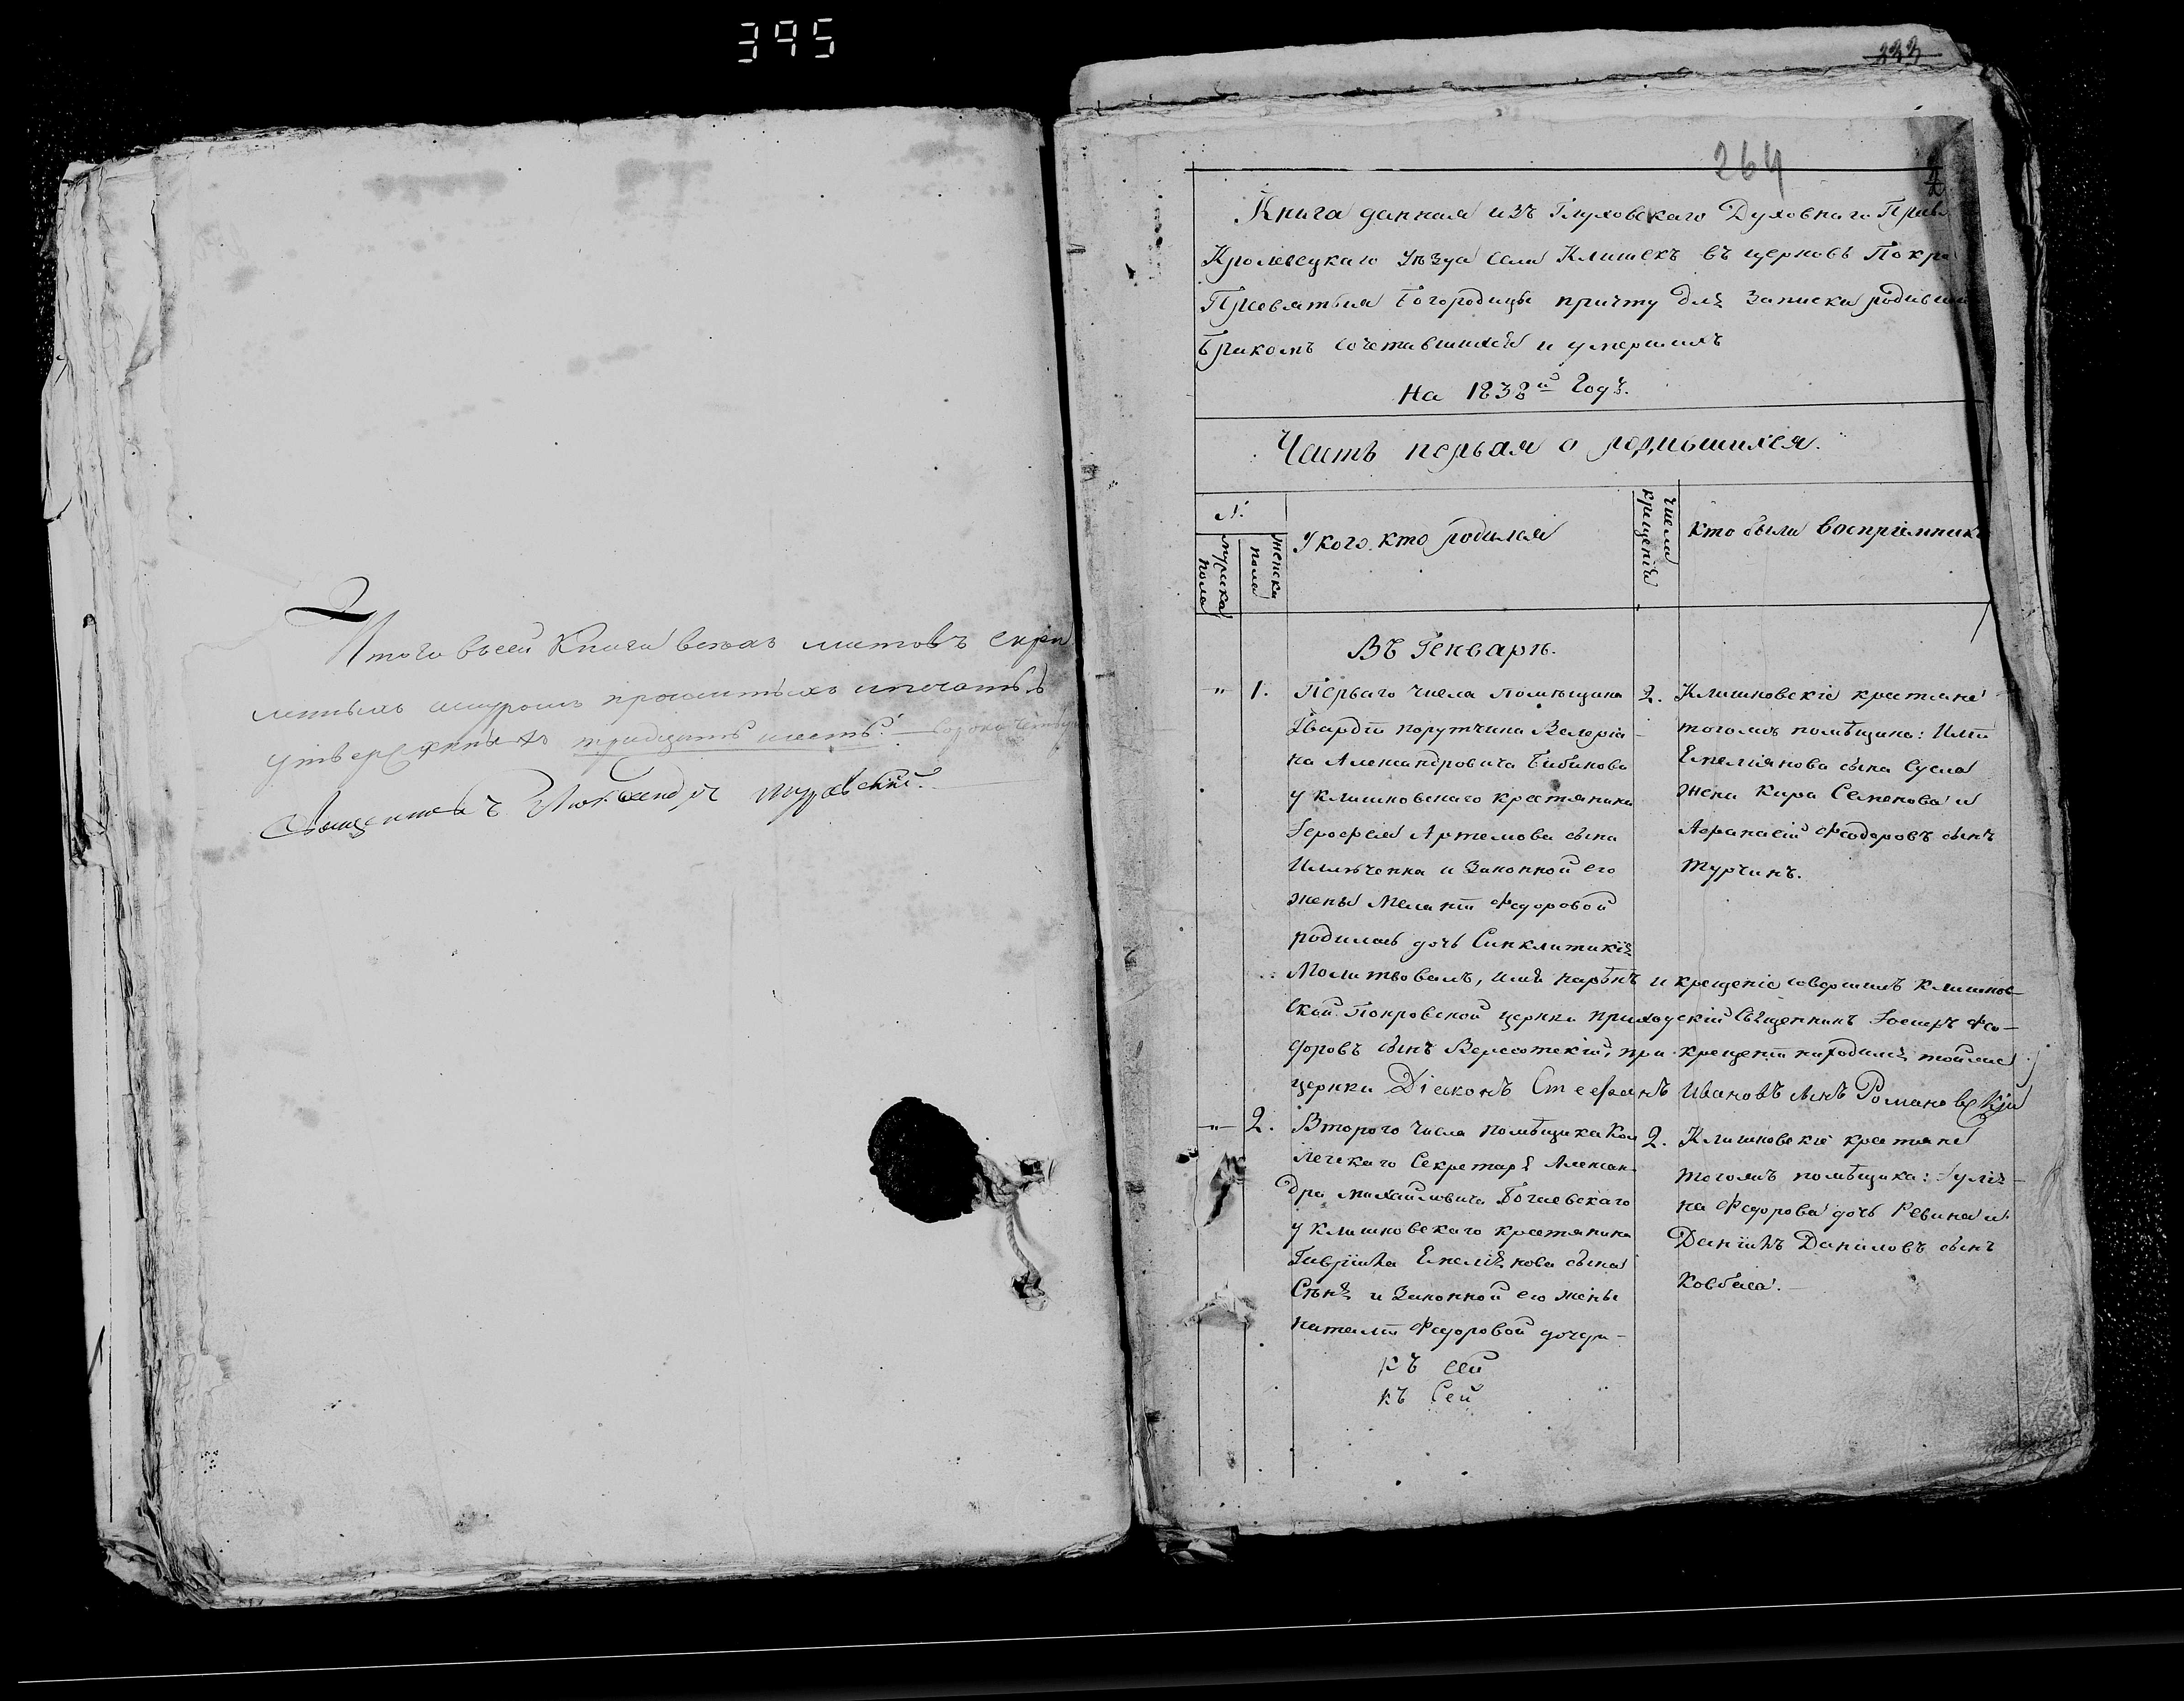 395
Итого в сей Книги всехъ листовъ скре
пленныхъ шнуромъ прошитыхъ ипечатью
утвержденныхъ тридцать шесть. сорокъ четыре
Священникъ Александръ
333
264
2
Книга данная изъ Глуховскаго Духовнаго Прав
Кролевецкаго уѣзда села Клишекъ въ церковь Покро
Пресвятыя Богородицы причту для записки родивши
бракомъ сочетавшихся и умершихъ
На 1838й Годъ.
Часть первая о родившихся.
№.
мужеска пола
женска пола
У кого кто родился
Число крещенія
Кто были воспріемники
Въ Генварѣ.
" 1. Перваго числа помѣщика
Гвардіи порутчика Валеріа-
на Александровича Бибикова
у клишковскаго крестянина
Ерофея Артемова сына
Ильченка и Законной его
жены Меланіи Федоровой
родилась дочь Синклитикія
2. Клишковскіе крестяне
тогожъ помѣщика:
Емеліянова сына Сусла
жена Кира Семенова и
Афанасій Феодоровъ сынъ
Турчинъ.
Молитвовалъ, имя нарѣкъ и крещеніе совершилъ клишков-
ской Покровской церкви приходскій Священникъ Іосифъ Фео-
доровъ сынъ Вересотскій, при крещеніи находился тойже
церкви Діаконъ Стефанъ Ивановъ сынъ Романовскій
" 2. Второго числа помѣщика Кол
лежскаго Секретаря Алексан
дра Михайловича Богаевскаго
у клишковскаго крестянина
Гавріила Емеліянова сына
и Законной его жены
Наталіи Федоровой дочери
къ сей
къ Сей
2. Клишковскіе крестяне
тогожъ помѣщика: Іулія-
на Федорова дочь Ревина и
Даніилъ Даниловъ сынъ
Ковбаса.